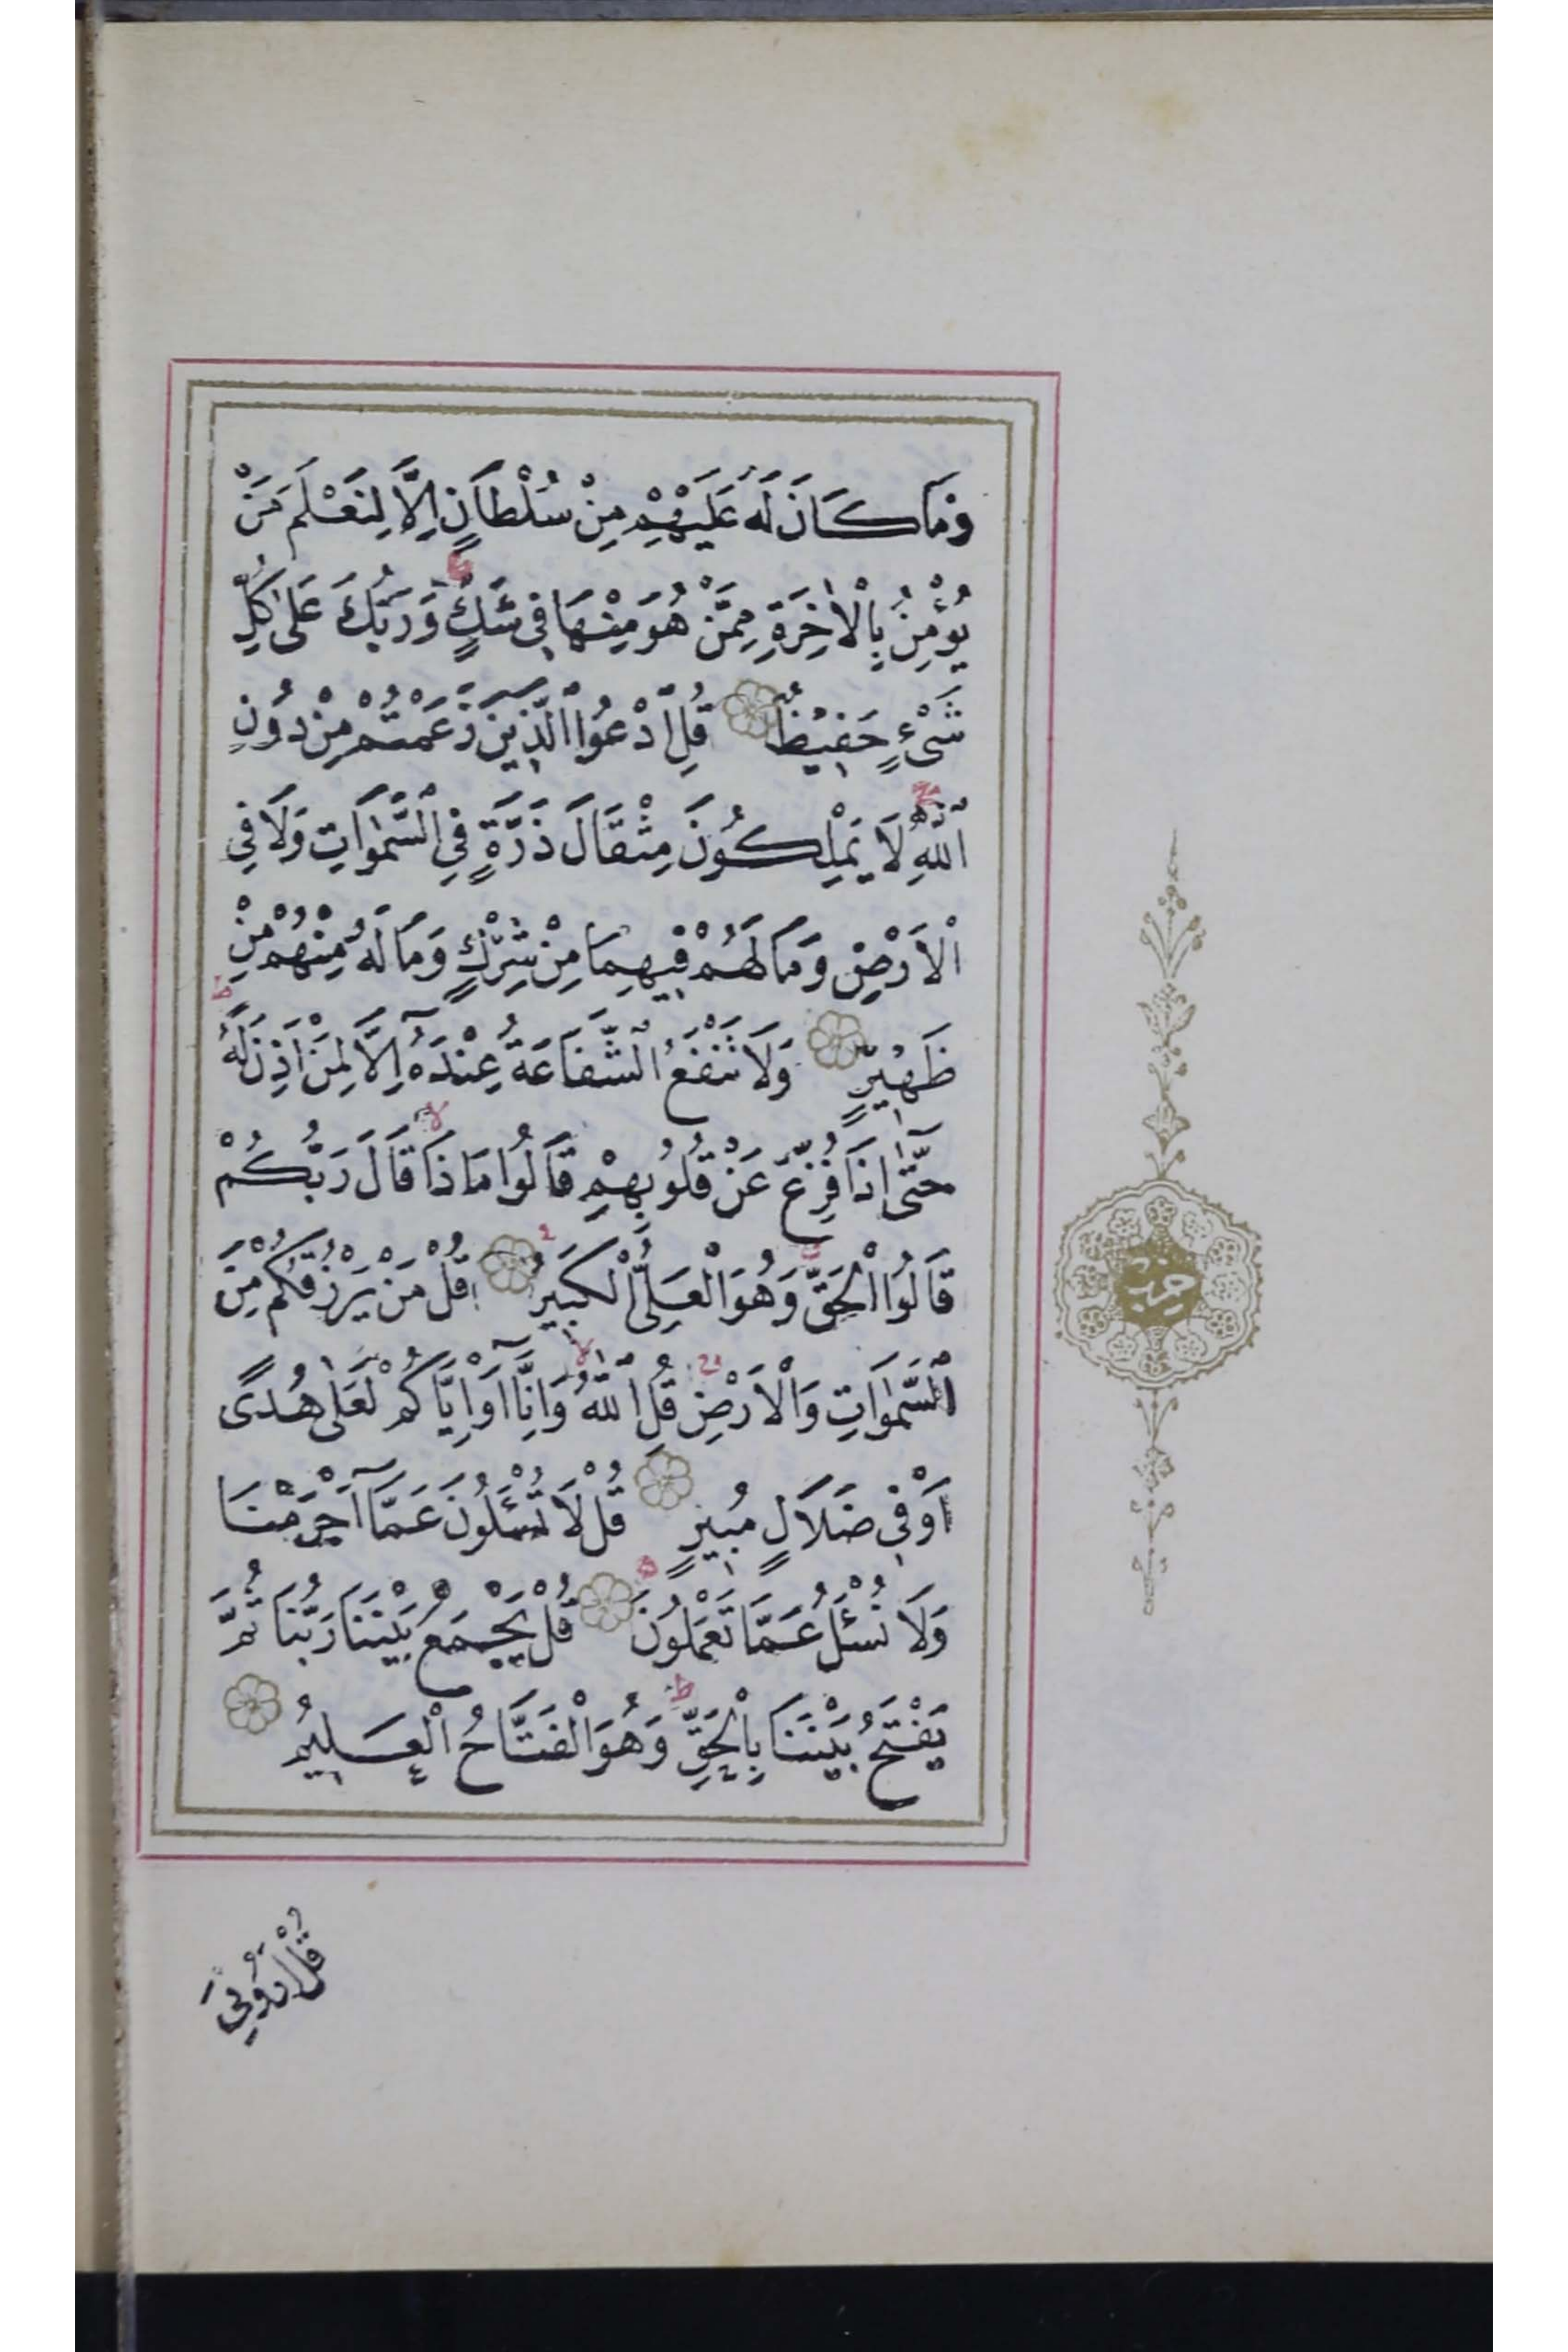 وَمَا كَانَ لَهُ عَلَيْهِمْ مِنْ سُلْطَانٍ اِلَّا لِنَعْلَمَ مَنْ
يُؤْمِنُ بِالْاٰخِرَةِ مِمَّنْ هُوَ مِنْهَا فِي شَكٍّ وَرَبُّكَ عَلٰى كُلِّ
شَيْءٍ حَفِيظٌ قُلِ ادْعُوا الَّذِينَ زَعَمْتُمْ مِنْ دُونِ
اللّٰهِ لَا يَمْلِكُونَ مِثْقَالَ ذَرَّةٍ فِي السَّمٰوَاتِ وَلَا فِي
الْاَرْضِ وَمَا لَهُمْ فِيهِمَا مِنْ شِرْكٍ وَمَا لَهُ مِنْهُمْ مِنْ
ظَهِيرٍ وَلَا تَنْفَعُ الشَّفَاعَةُ عِنْدَهُٓ اِلَّا لِمَنْ اَذِنَ لَهُ
حَتّٰٓى اِذَا فُزِّعَ عَنْ قُلُوبِهِمْ قَالُوا مَاذَا قَالَ رَبُّكُمْ
قَالُوا الْحَقَّ وَهُوَ الْعَلِيُّ الْكَبِيرُ قُلْ مَنْ يَرْزُقُكُمْ مِنَ
السَّمٰوَاتِ وَالْاَرْضِ قُلِ اللّٰهُ وَاِنَّٓا اَوْ اِيَّاكُمْ لَعَلٰى هُدًى
اَوْ فِي ضَلَالٍ مُبِينٍ قُلْ لَا تُسْـَٔلُونَ عَمَّٓا اَجْرَمْنَا
وَلَا نُسْـَٔلُ عَمَّا تَعْمَلُونَ قُلْ يَجْمَعُ بَيْنَنَا رَبُّنَا ثُمَّ
يَفْتَحُ بَيْنَنَا بِالْحَقِّ وَهُوَ الْفَتَّاحُ الْعَلِيمُ
حزب
قُلْ اَرُونِيَ